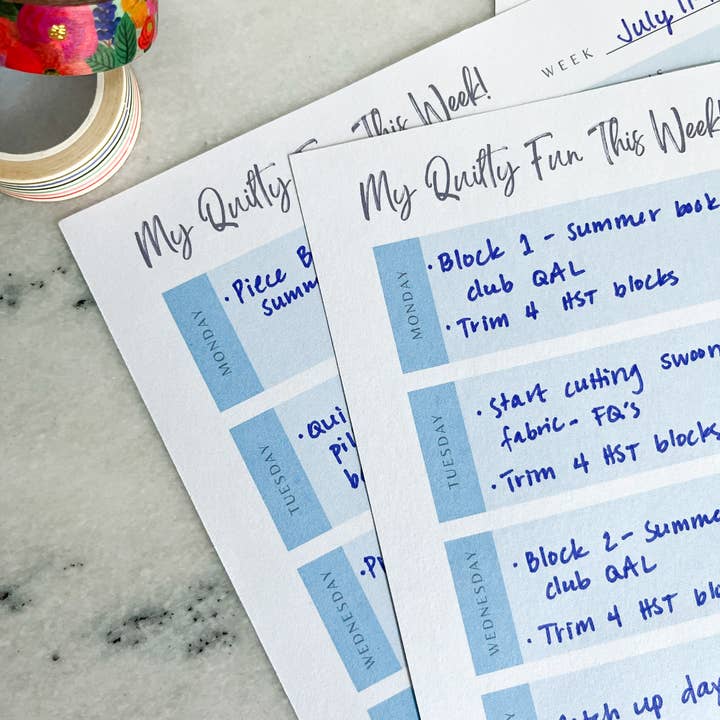 WEEK July 11
My Quilty Fun This Week!
MONDAY
• Piece
summ
TUESDAY
• Qui
pil
WEDNESDAY
My Quilty Fun This Week!
MONDAY
• Block 1 - summer book
club QAL
• Trim 4 HST blocks
TUESDAY
• Start cutting swoon
fabric - FQ's
• Trim 4 HST blocks
WEDNESDAY
• Block 2 - summe
club QAL
• Trim 4 HST blo
up day